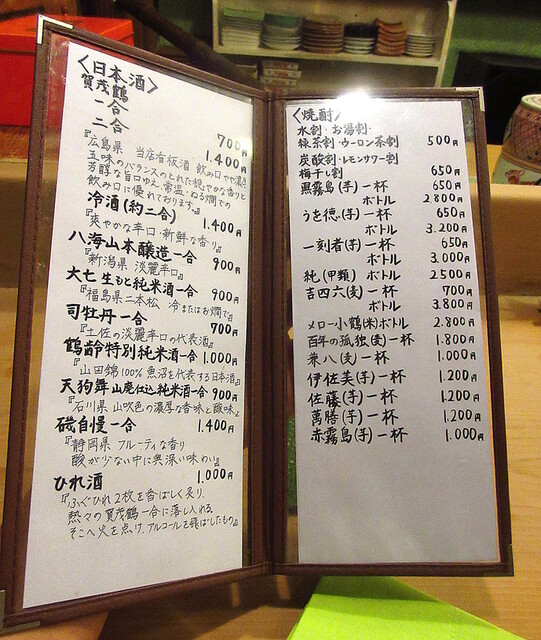 〈日本酒〉
賀茂鶴
一合 700円
二合 1.400円
『広島県 当店看板酒 飲み口やや濃
五味のバランスのとれた穏やかな香りと
芳醇な旨口ゆえ、常温・ぬる燗での
飲み口に優れております。』
冷酒(約二合) 1.400円
『爽やかな辛口・新鮮な香り』
八海山本醸造一合 900円
『新潟県 淡麗辛口』
大七 生もと純米酒一合 900円
『福島県二本松 冷またはお燗で』
司牡丹一合 700円
『土佐の淡麗辛口の代表酒』
鶴齢特別純米酒一合 1.000円
『山田錦100% 魚沼を代表する日本酒』
天狗舞 山廃仕込純米酒一合 900円
『石川県 山吹色の濃厚な香味と酸味』
磯自慢一合 1.400円
『静岡県 フルーティな香り
酸が少ない中に奥深い味わい』
ひれ酒 1.000円
『ふぐひれ2枚を香ばしく炙り、
熱々の賀茂鶴一合に落し入れる。
そこへ火を点け、アルコールを飛ばしたもの』
〈焼酎〉
水割・お湯割・
緑茶割・ウーロン茶割 500円
炭酸割・レモンサワー割
梅干し割 650円
黒霧島(芋)一杯 650円
ボトル 2.800円
うを徳(芋)一杯 650円
ボトル 3.200円
一刻者(芋)一杯 650円
ボトル 3.000円
純(甲類) ボトル 2500円
吉四六(麦)一杯 700円
ボトル 3.800円
メロー小鶴(米)ボトル 2.800円
百年の孤独(麦)一杯 1.800円
兼八(麦)一杯 1.000円
伊佐美(芋)一杯 1.200円
佐藤(芋)一杯 1.200円
萬膳(芋)一杯 1.200円
赤霧島(芋)一杯 1.000円